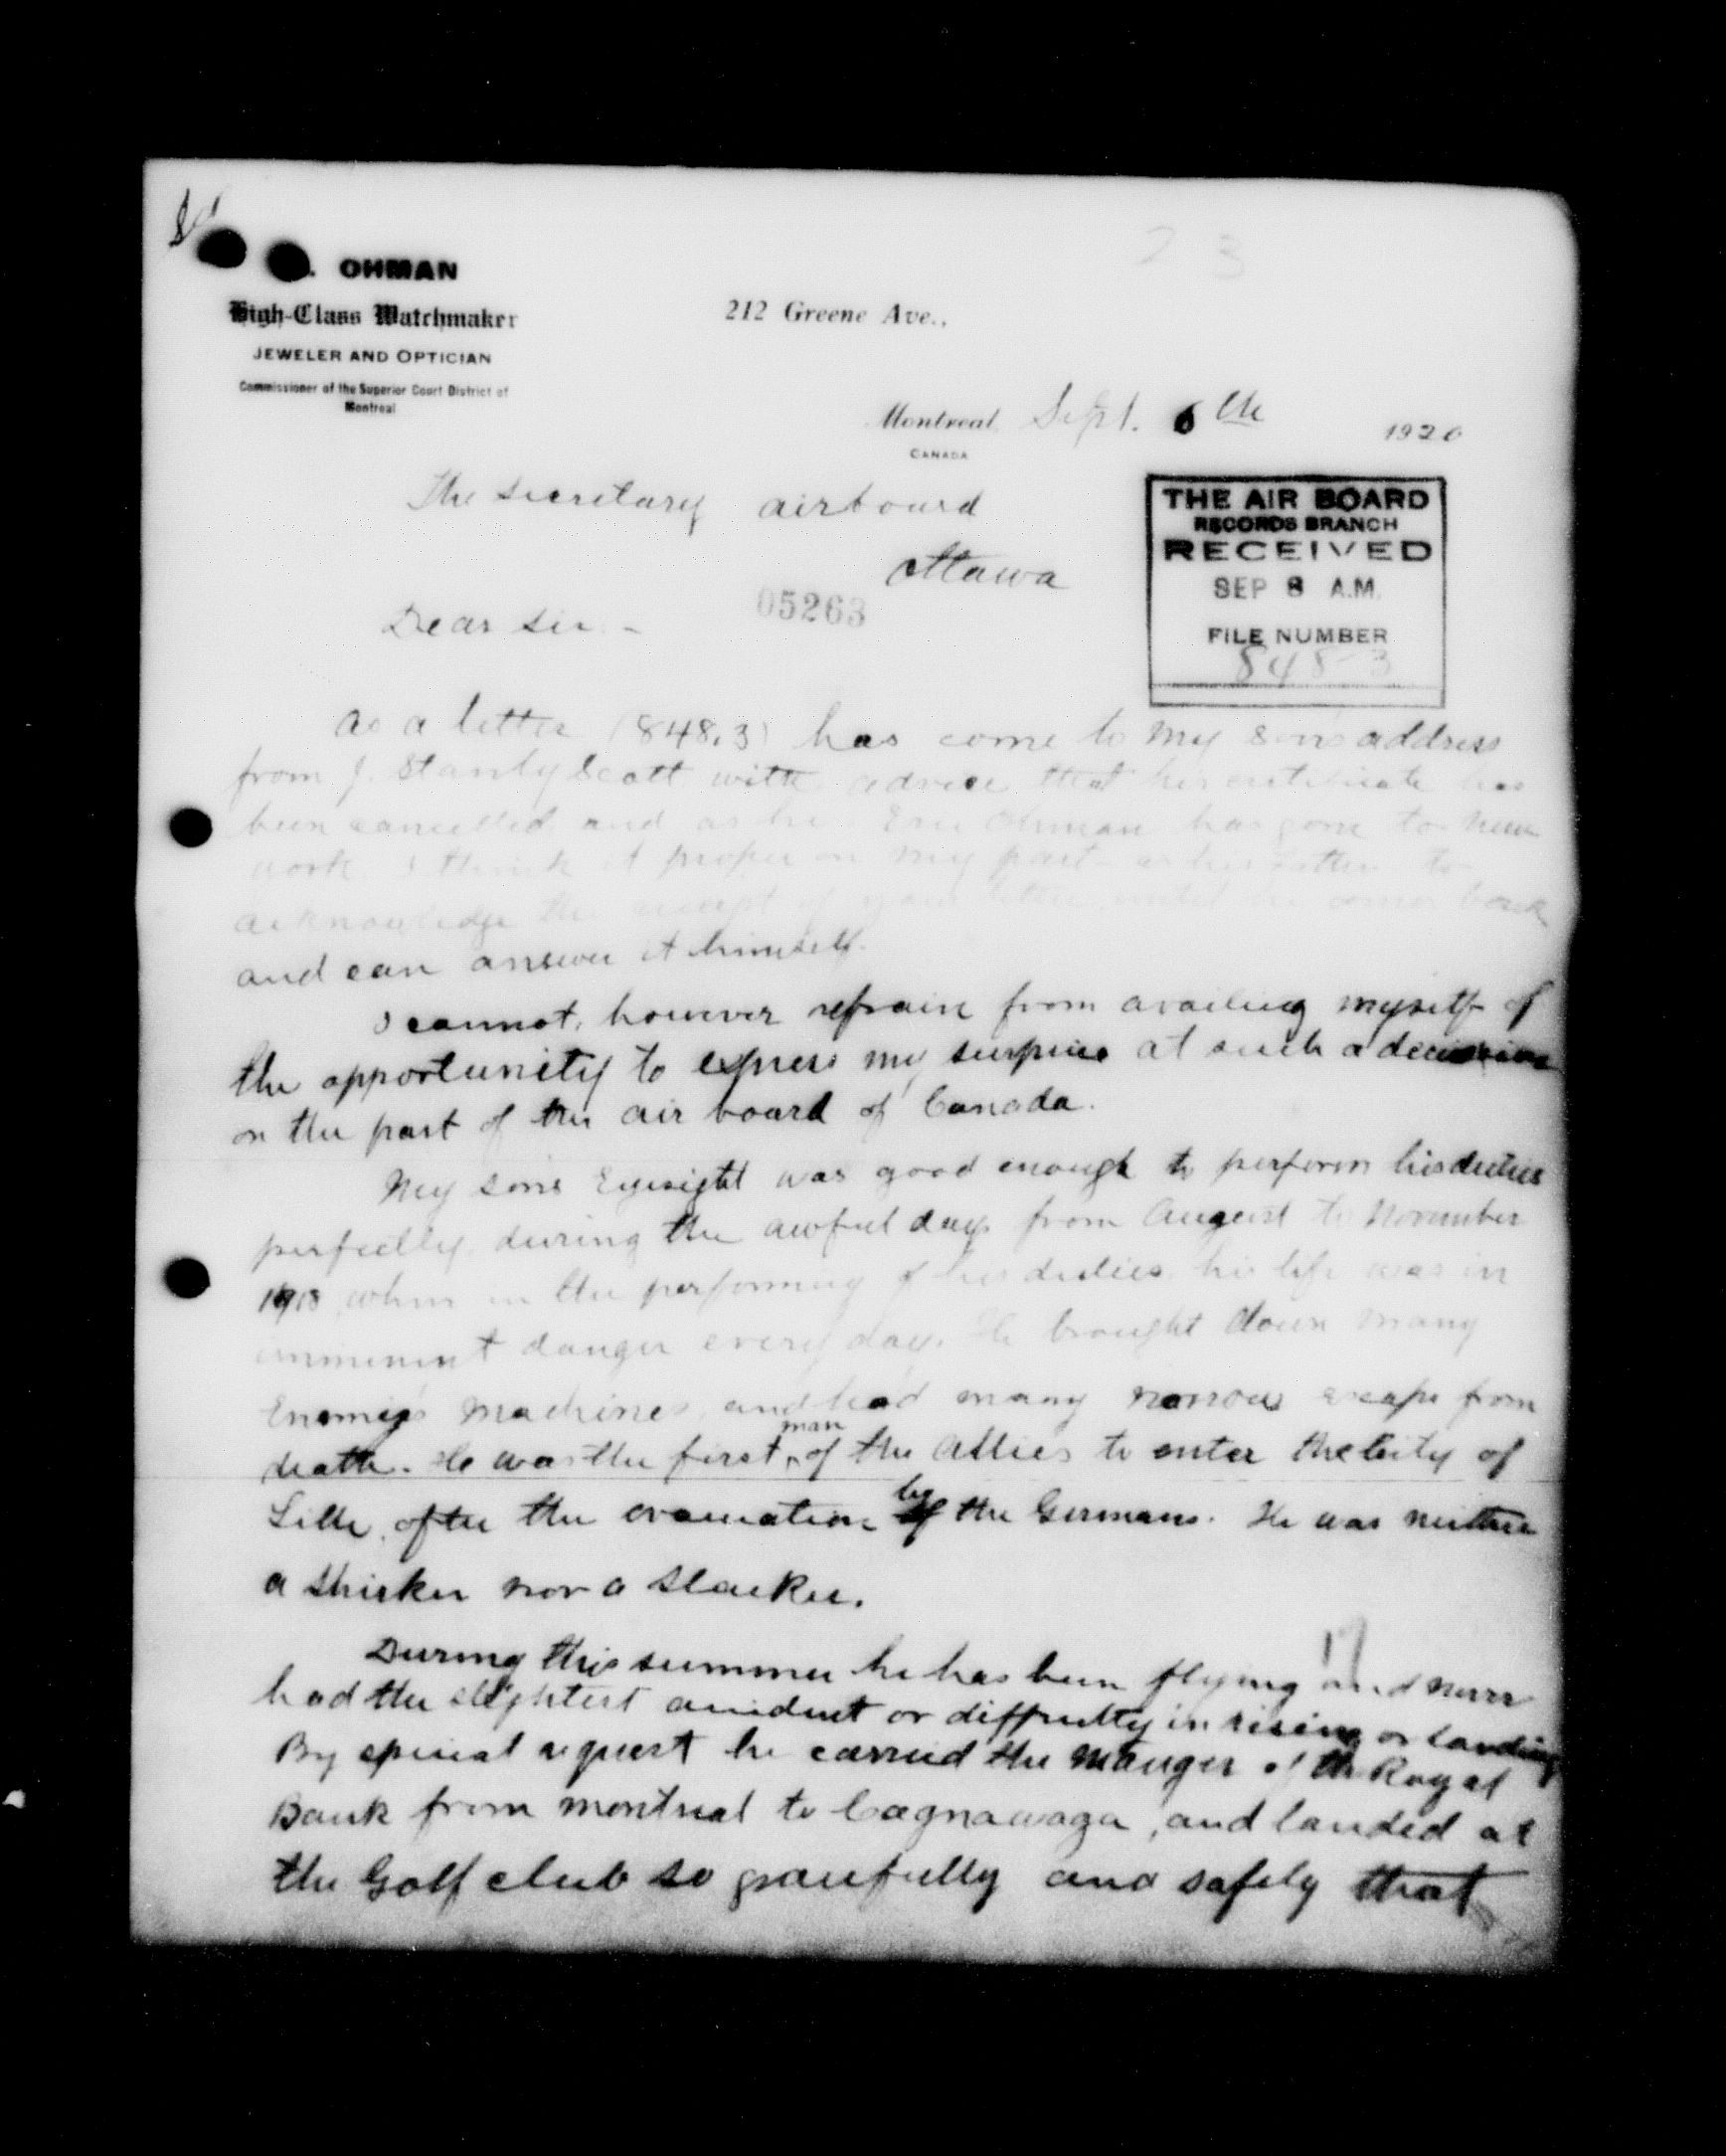 23
. OHMAN
High-Class Watchmaker
JEWELER AND OPTICIAN
Commissioner of the Superior Court District of
Montreal
212 Greene Ave.,
Montreal, Sept. 6th 1920
CANADA
The Secretary airboard
Ottawa
THE AIR BOARD
RECORDS BRANCH
RECEIVED
SEP 8 A.M.
FILE NUMBER
848-3
05263
Dear Sir. -
As a letter (848.3) has come to my son's address
from J. Stanly Scott with advice that his certificate has
been cancelled and as he Eric Ohman has gone to New
work I think it proper on my part as his father to
acknowledge the receipt of your letter until he comes back
and can answer it himself.
I cannot, however refrain from availing myself of
the opportunity to express my surprise at such a decision
on the part of the air board of Canada.
My sons Eyesight was good enough to perform his duties
perfectly during the awful days from August to November
1918 when in the performing of his duties his life was in
imminent danger every day. He brought down many
Enemys machines and had many narrow escape from
death. He was the first man of the Allies to enter the city of
Lille, after the evacuation by the Germans. He was neither
a shirker nor a slacker.
17
During this summer he has been flying and never
had the slightest accident or difficulty in rising or landing
By special request he carried the Manger of the Royal
Bank from Montreal to Cagnawaga, and landed at
the Golf club so gracefully and safely that